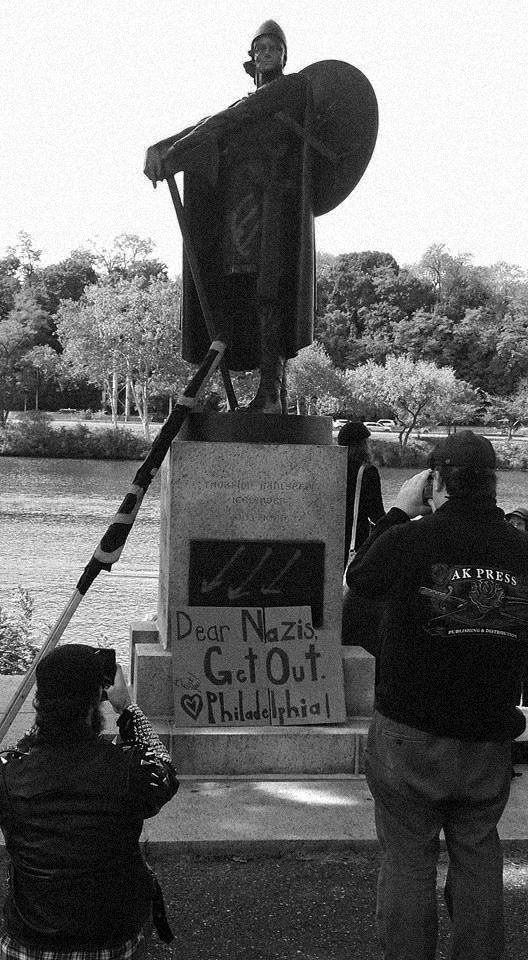 THORFINN KARLSEFNI
ICELANDER
Dear Nazis,
Get Out.
♡ Philadelphia!
AK PRESS
PUBLISHING & DISTRIBUTION